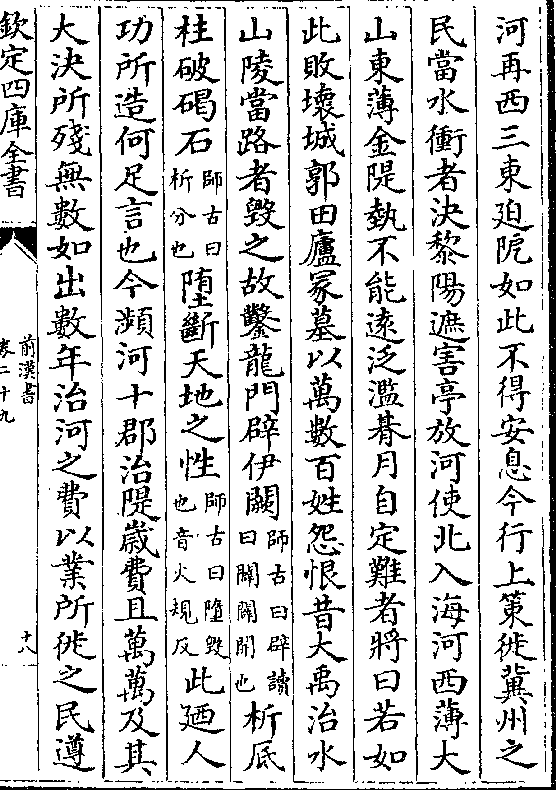 河再西三東迫阨如此不得安息今行上策徙冀州之
民當水衝者決黎陽遮害亭放河使北入海河西薄大
山東薄金隄埶不能遠泛濫朞月自定難者將曰若如
此敗壞城郭田廬冢墓以萬數百姓怨恨昔大禹治水
山陵當路者毀之故鑿龍門辟伊闕師古曰辟讀曰闢闢開也析厎
柱破碣石師古曰析分也墮斷天地之性師古曰墮毀也音火規反此廼人
功所造何足言也今瀕河十郡治隄歲費且萬萬及其
大決所殘無數如出數年治河之費以業所徙之民遵
欽定四庫全書
前漢書
卷二十九
十八